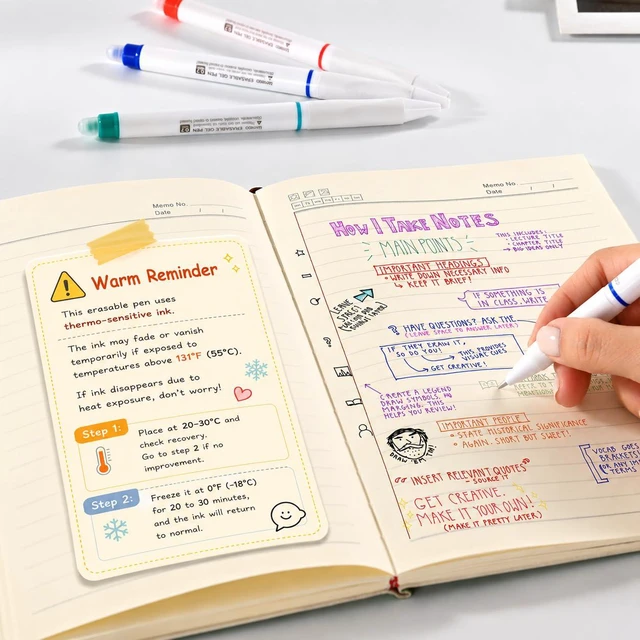 ERASABLE GEL PEN
ERASABLE GEL PEN
ERASABLE GEL PEN
Memo No.
Date / /
Warm Reminder
This erasable pen uses
thermo-sensitive ink.
The ink may fade or vanish
temporarily if exposed to
temperatures above 131°F (55°C).
If ink disappears due to
heat exposure, don't worry!
Step 1:
Place at 20-30°C and
check recovery.
Go to step 2 if no
improvement.
Step 2:
Freeze it at 0°F (-18°C)
for 20 to 30 minutes,
and the ink will return
to normal.
Memo No.
Date / /
HOW I TAKE NOTES
MAIN POINTS
THIS INCLUDES:
· LECTURE TITLE
· CHAPTER TITLE
BIG IDEAS ONLY!
IMPORTANT HEADINGS
· WRITE DOWN NECESSARY INFO
KEEP IT BRIEF!
LEAVE
SPACE!
IF SOMETHING IS
IN CLASS, WRITE
HAVE QUESTIONS? ASK THE
(LEAVE SPACE TO ANSWER LATER)
IF THEY
SO DO YOU!
THIS PROVIDES
VISUAL CUES
GET CREATIVE!
CREATE A LEGEND
DRAW SYMBOLS IN
MARGINS. THIS
HELPS YOU REVIEW!
IMPORTANT PEOPLE
· STATE HISTORICAL SIGNIFICANCE
· AGAIN, SHORT BUT SWEET!
DRAW 'EM IN!
INSERT RELEVANT QUOTES
- SOURCE IT
VOCAB GOES
BRACKETS
GET CREATIVE.
MAKE IT YOUR OWN!
(MAKE IT PRETTY LATER)